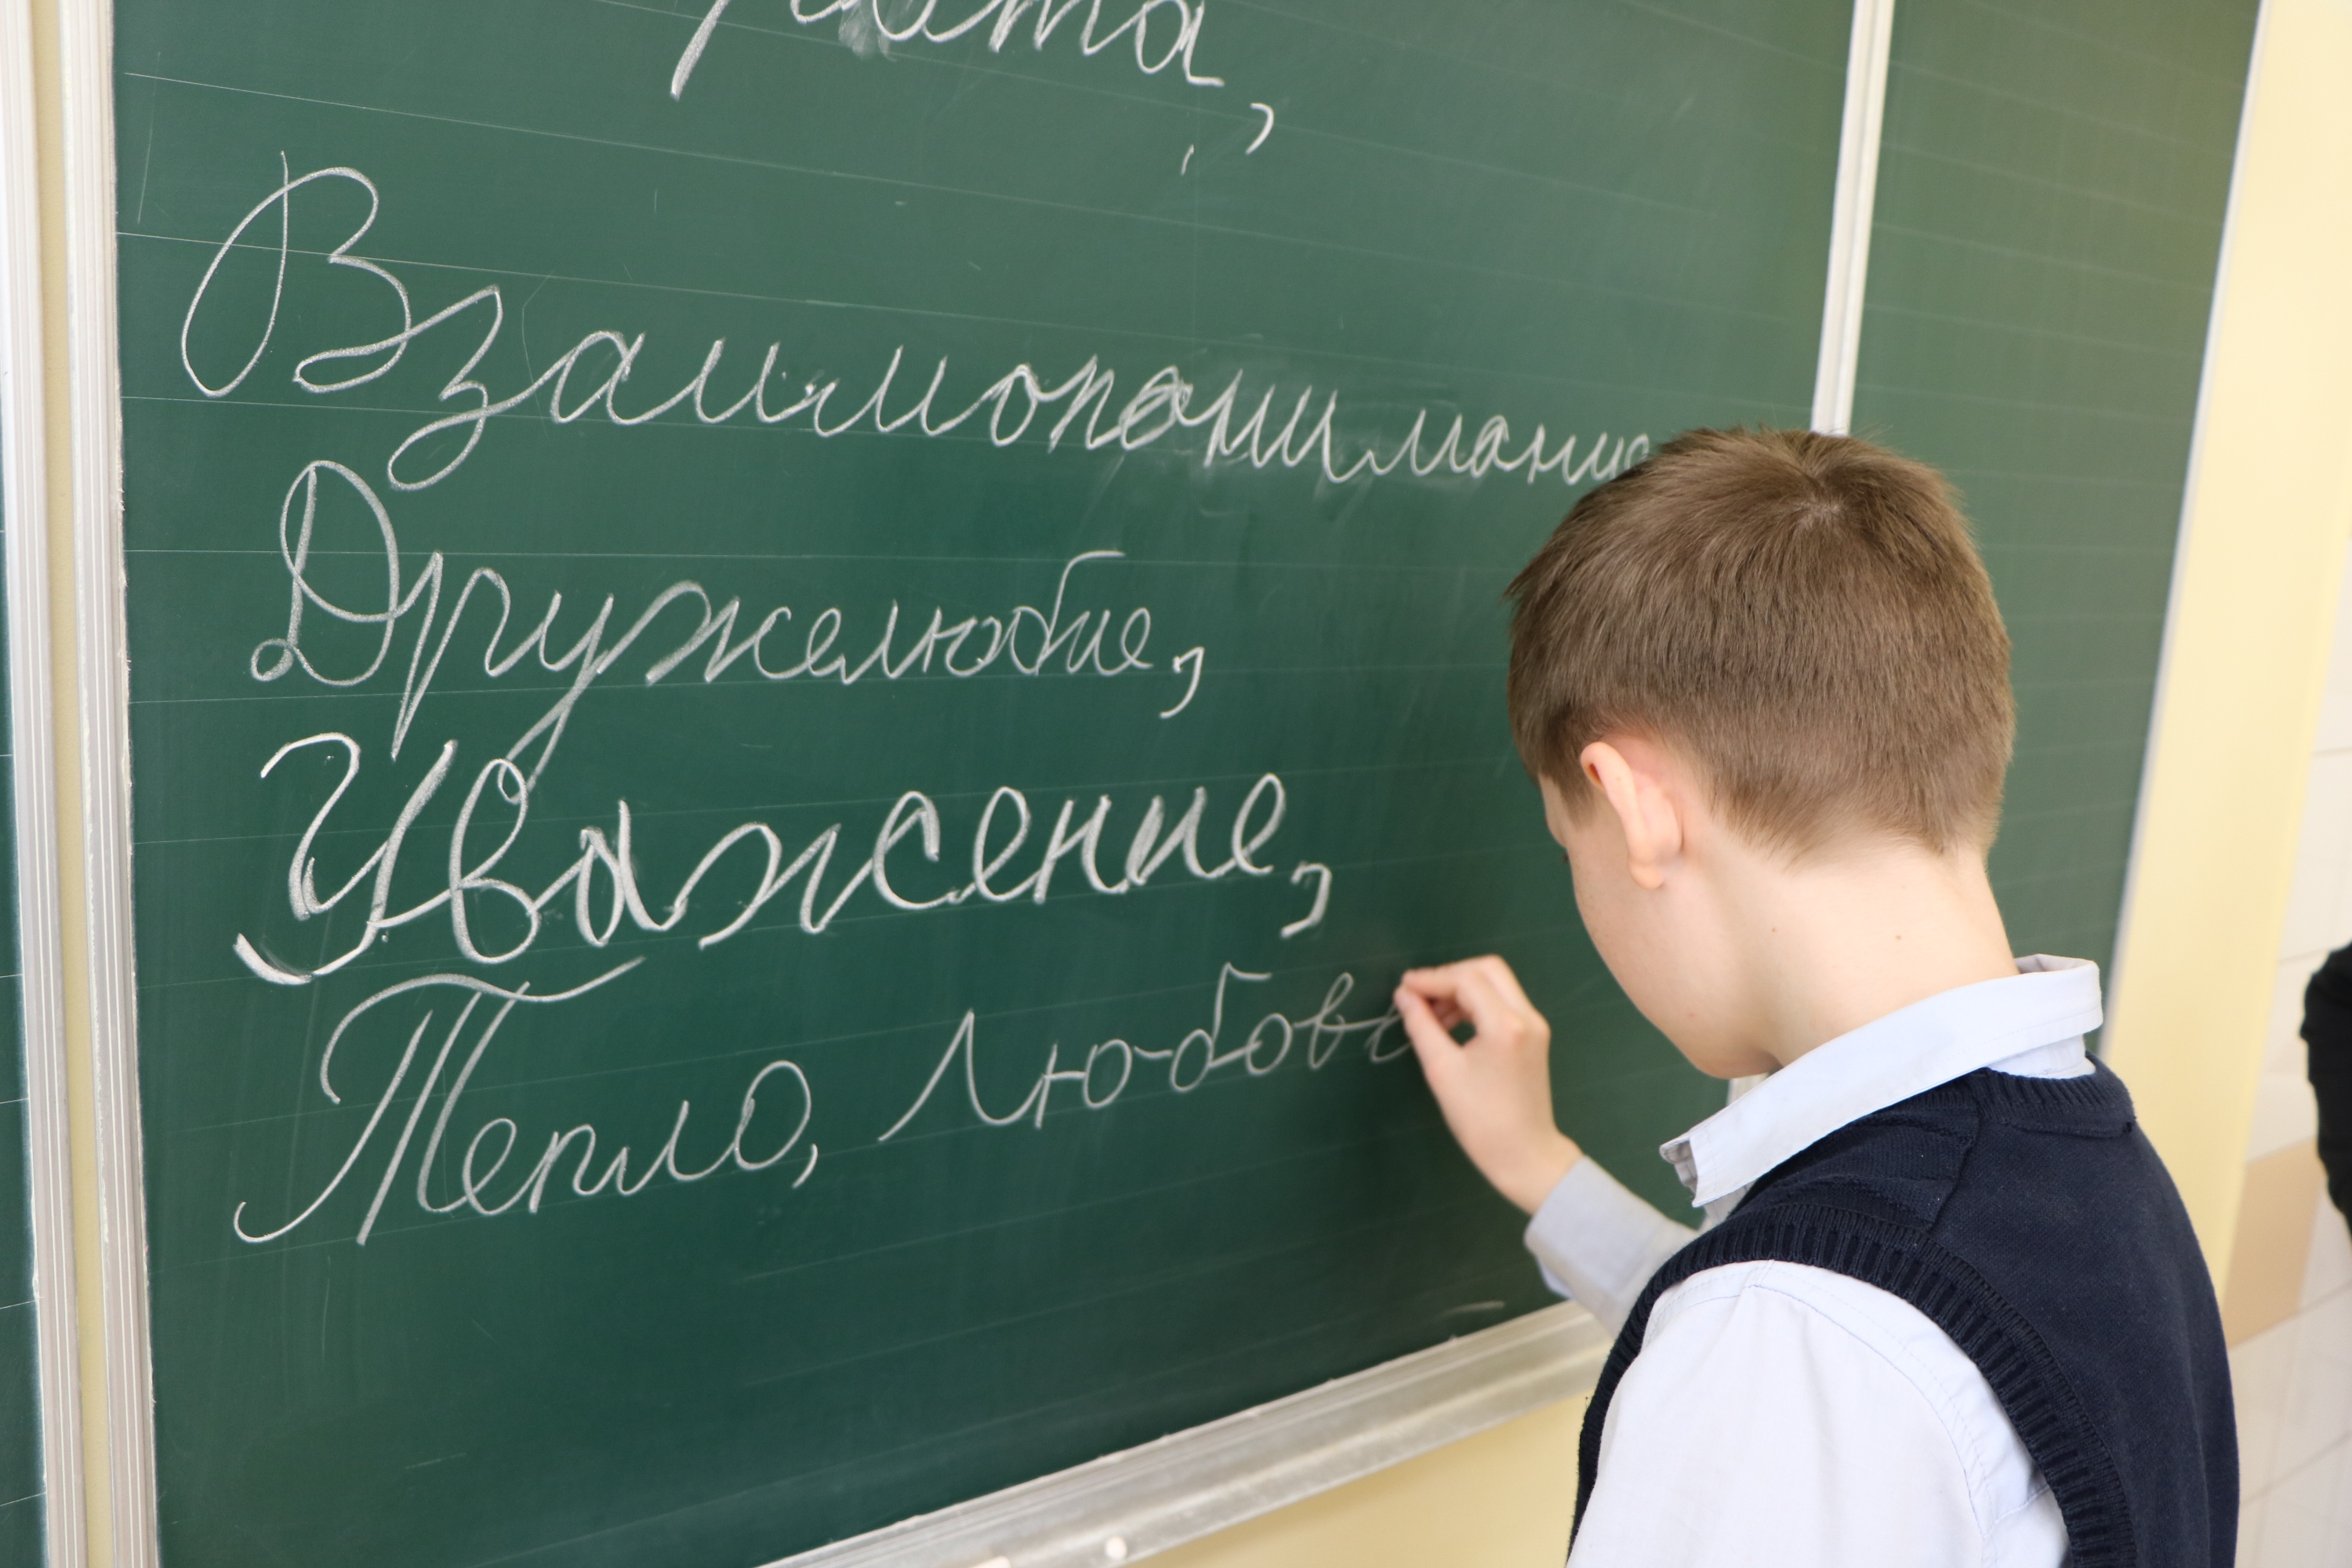 Взаимопонимание
Дружелюбие,
Уважение,
Тепло, Любовь